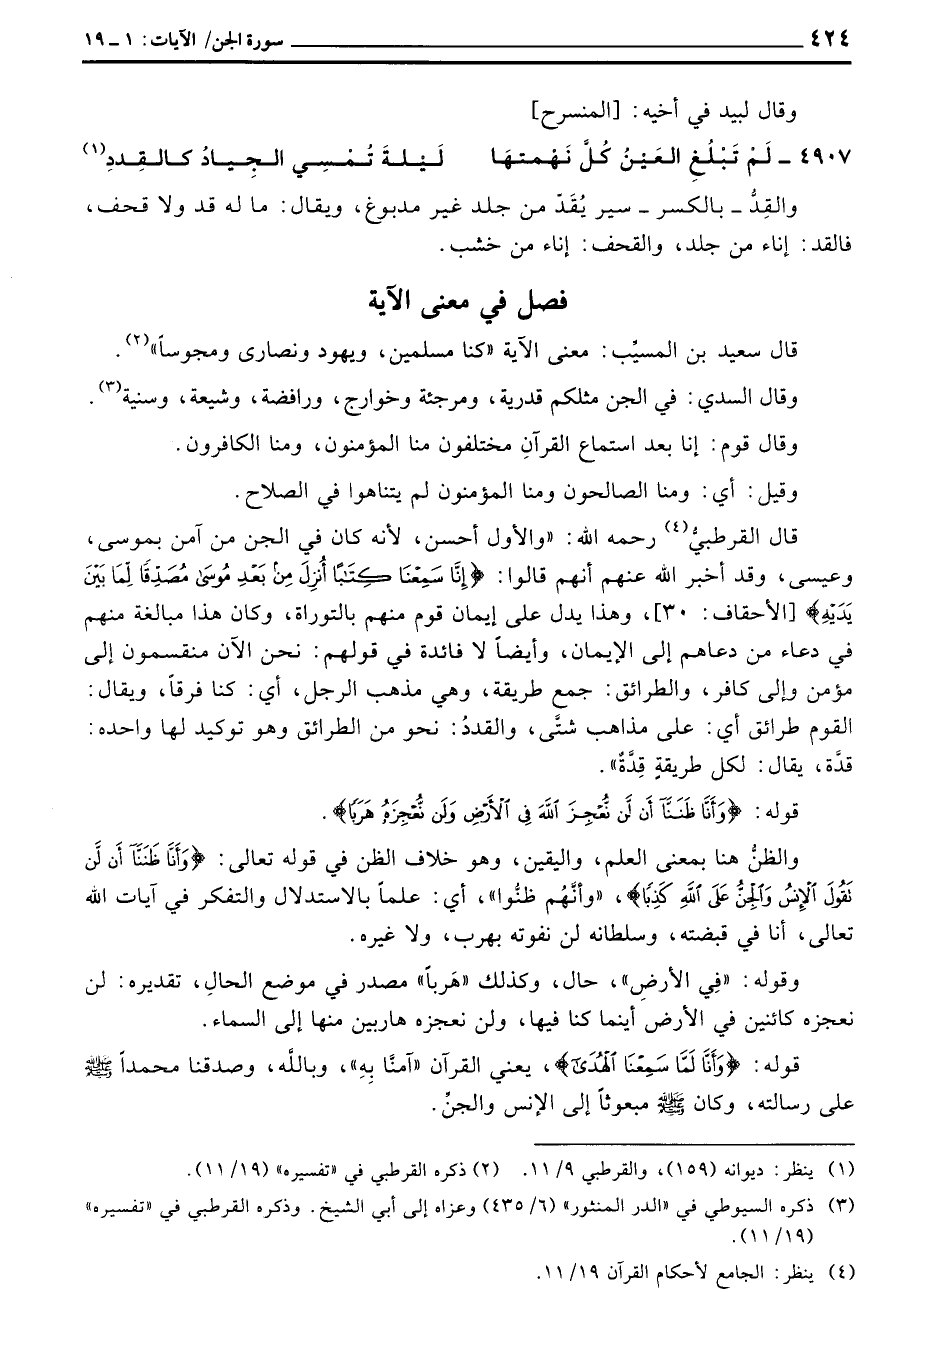 ٤٢٤ ــــــــــــــــــــ سورة الجن/ الآيات: ١ ـ ١٩
وقال لبيد في أخيه: [المنسرح]
٤٩٠٧ ـ لَمْ تَبْلُغِ العَيْنُ كُلَّ نَهْمتهَا لَيْلةَ تُمْسِي الجِيادُ كالقِددِ(١)
والقِدُّ ـ بالكسر ـ سير يُقَدّ من جلد غير مدبوغ، ويقال: ما له قد ولا قحف،
فالقد: إناء من جلد، والقحف: إناء من خشب.
فصل في معنى الآية
قال سعيد بن المسيِّب: معنى الآية «كنا مسلمين، ويهود ونصارى ومجوساً»(٢).
وقال السدي: في الجن مثلكم قدرية، ومرجئة وخوارج، ورافضة، وشيعة، وسنية(٣).
وقال قوم: إنا بعد استماع القرآنِ مختلفون منا المؤمنون، ومنا الكافرون.
وقيل: أي: ومنا الصالحون ومنا المؤمنون لم يتناهوا في الصلاح.
قال القرطبيُّ(٤) رحمه الله: «والأول أحسن، لأنه كان في الجن من آمن بموسى،
وعيسى، وقد أخبر الله عنهم أنهم قالوا: ﴿إِنَّا سَمِعْنَا كِتَٰبًا أُنزِلَ مِنۢ بَعْدِ مُوسَىٰ مُصَدِّقًا لِّمَا بَيْنَ
يَدَيْهِ﴾ [الأحقاف: ٣٠]، وهذا يدل على إيمان قوم منهم بالتوراة، وكان هذا مبالغة منهم
في دعاء من دعاهم إلى الإيمان، وأيضاً لا فائدة في قولهم: نحن الآن منقسمون إلى
مؤمن وإلى كافر، والطرائق: جمع طريقة، وهي مذهب الرجل، أي: كنا فرقاً، ويقال:
القوم طرائق أي: على مذاهب شتَّى، والقددُ: نحو من الطرائق وهو توكيد لها واحده:
قدَّة، يقال: لكل طريقةٍ قِدَّةٌ».
قوله: ﴿وَأَنَّا ظَنَنَّآ أَن لَّن نُّعْجِزَ ٱللَّهَ فِى ٱلْأَرْضِ وَلَن نُّعْجِزَهُۥ هَرَبًا﴾.
والظنُّ هنا بمعنى العلم، واليقين، وهو خلاف الظن في قوله تعالى: ﴿وَأَنَّا ظَنَنَّآ أَن لَّن
نَقُولَ ٱلْإِنسُ وَٱلْجِنُّ عَلَى ٱللَّهِ كَذِبًا﴾، «وأنَّهُم ظنُّوا»، أي: علماً بالاستدلال والتفكر في آيات الله
تعالى، أنا في قبضته، وسلطانه لن نفوته بهرب، ولا غيره.
وقوله: «فِي الأرضِ»، حال، وكذلك «هَرباً» مصدر في موضع الحالِ، تقديره: لن
نعجزه كائنين في الأرض أينما كنا فيها، ولن نعجزه هاربين منها إلى السماء.
قوله: ﴿وَأَنَّا لَمَّا سَمِعْنَا ٱلْهُدَىٰٓ﴾، يعني القرآن «آمنَّا بِهِ»، وباللَّه، وصدقنا محمداً ﷺ
على رسالته، وكان ﷺ مبعوثاً إلى الإنس والجنِّ.
(١) ينظر: ديوانه (١٥٩)، والقرطبي ١١/٩. (٢) ذكره القرطبي في «تفسيره» (١١/١٩).
(٣) ذكره السيوطي في «الدر المنثور» (٦/ ٤٣٥) وعزاه إلى أبي الشيخ. وذكره القرطبي في «تفسيره»
(١١/١٩).
(٤) ينظر: الجامع لأحكام القرآن ١١/١٩.